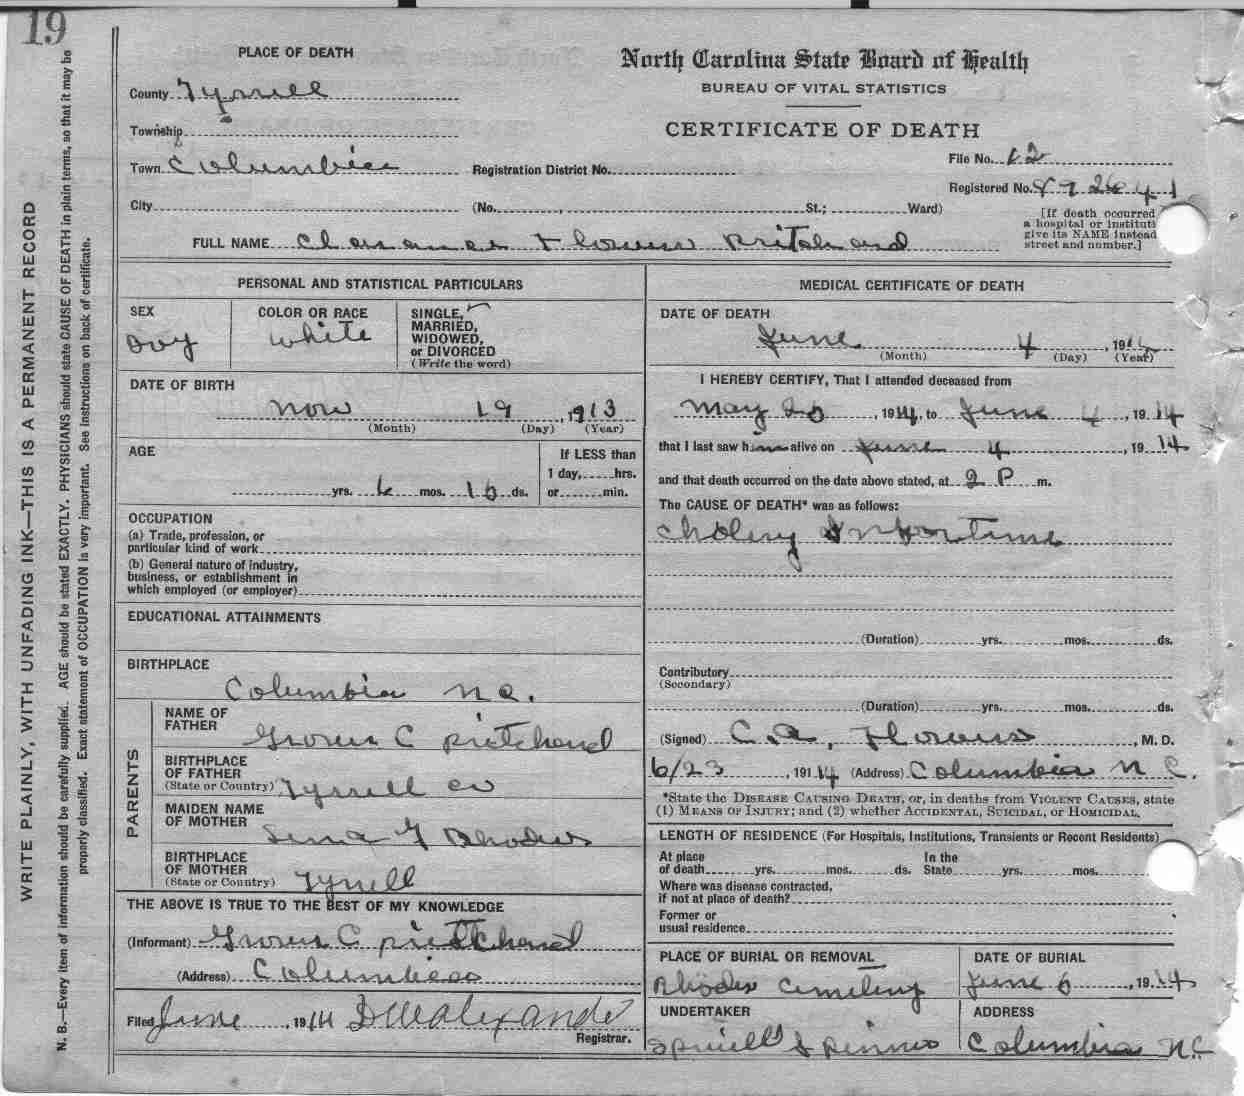 19
PLACE OF DEATH
County Tyrrell
Township
Town Columbia
City
North Carolina State Board of Health
BUREAU OF VITAL STATISTICS
CERTIFICATE OF DEATH
File No. 12
Registration District No.
Registered No.
(No. , St.; Ward)
[If death occurred
a hospital or instituti
give its NAME instead
street and number.]
FULL NAME Pritchard
PERSONAL AND STATISTICAL PARTICULARS
SEX
Boy
COLOR OR RACE
White
SINGLE,
MARRIED,
WIDOWED,
or DIVORCED
(Write the word)
DATE OF BIRTH
Nov 19, 1913
(Month) (Day) (Year)
AGE
yrs. 6 mos. 16 ds.
If LESS than
1 day, hrs.
or min.
OCCUPATION
(a) Trade, profession, or
particular kind of work
(b) General nature of industry,
business, or establishment in
which employed (or employer)
EDUCATIONAL ATTAINMENTS
BIRTHPLACE
Columbia N C.
PARENTS
NAME OF
FATHER
Grover C Pritchard
BIRTHPLACE
OF FATHER
(State or Country) Tyrrell Co
MAIDEN NAME
OF MOTHER
Rhodes
BIRTHPLACE
OF MOTHER
(State or Country) Tyrrell
THE ABOVE IS TRUE TO THE BEST OF MY KNOWLEDGE
(Informant) Grover C Pritchard
(Address) Columbia
Filed June , 1914
Registrar.
MEDICAL CERTIFICATE OF DEATH
DATE OF DEATH
June 4 , 191
(Month) (Day) (Year)
I HEREBY CERTIFY, That I attended deceased from
May , 1914, to June 4 , 1914
that I last saw him alive on June 4 , 1914
and that death occurred on the date above stated, at 2 P m.
The CAUSE OF DEATH* was as follows:
(Duration) yrs. mos. ds.
Contributory
(Secondary)
(Duration) yrs. mos. ds.
(Signed) C. A. Flowers , M. D.
6/23 , 1914 (Address) Columbia N C.
*State the DISEASE CAUSING DEATH, or, in deaths from VIOLENT CAUSES, state
(1) MEANS OF INJURY; and (2) whether ACCIDENTAL, SUICIDAL, or HOMICIDAL.
LENGTH OF RESIDENCE (For Hospitals, Institutions, Transients or Recent Residents)
At place
of death yrs. mos. ds.
In the
State yrs. mos.
Where was disease contracted,
if not at place of death?
Former or
usual residence
PLACE OF BURIAL OR REMOVAL
Rhodes
DATE OF BURIAL
June 6 , 1914
UNDERTAKER
ADDRESS
Columbia N.C
WRITE PLAINLY, WITH UNFADING INK—THIS IS A PERMANENT RECORD
N. B.—Every item of information should be carefully supplied. AGE should be stated EXACTLY. PHYSICIANS should state CAUSE OF DEATH in plain terms, so that it may be
properly classified. Exact statement of OCCUPATION is very important. See instructions on back of certificate.